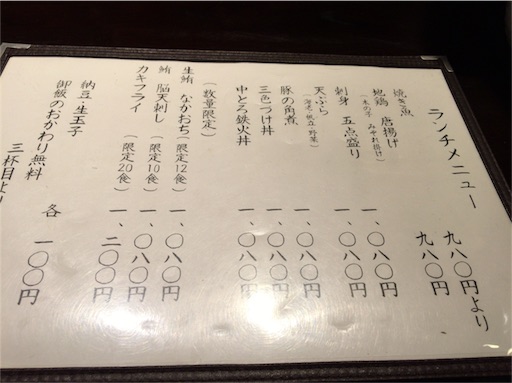 ランチメニュー
焼き魚 九八〇円より
地鶏 唐揚げ 九八〇円
(木の子 みぞれ掛け)
刺身 五点盛り 一、〇八〇円
天ぷら 一、〇八〇円
(海老・帆立・野菜)
豚の角煮 一、〇八〇円
三色づけ丼 一、〇八〇円
中とろ鉄火丼 一、〇八〇円
(数量限定)
生鮪 なかおち(限定12食) 一、〇八〇円
鮪 脳天刺し(限定10食) 一、〇八〇円
カキフライ(限定20食) 一、二〇〇円
納豆・生玉子 各 一〇〇円
御飯のおかわり無料
三杯目より